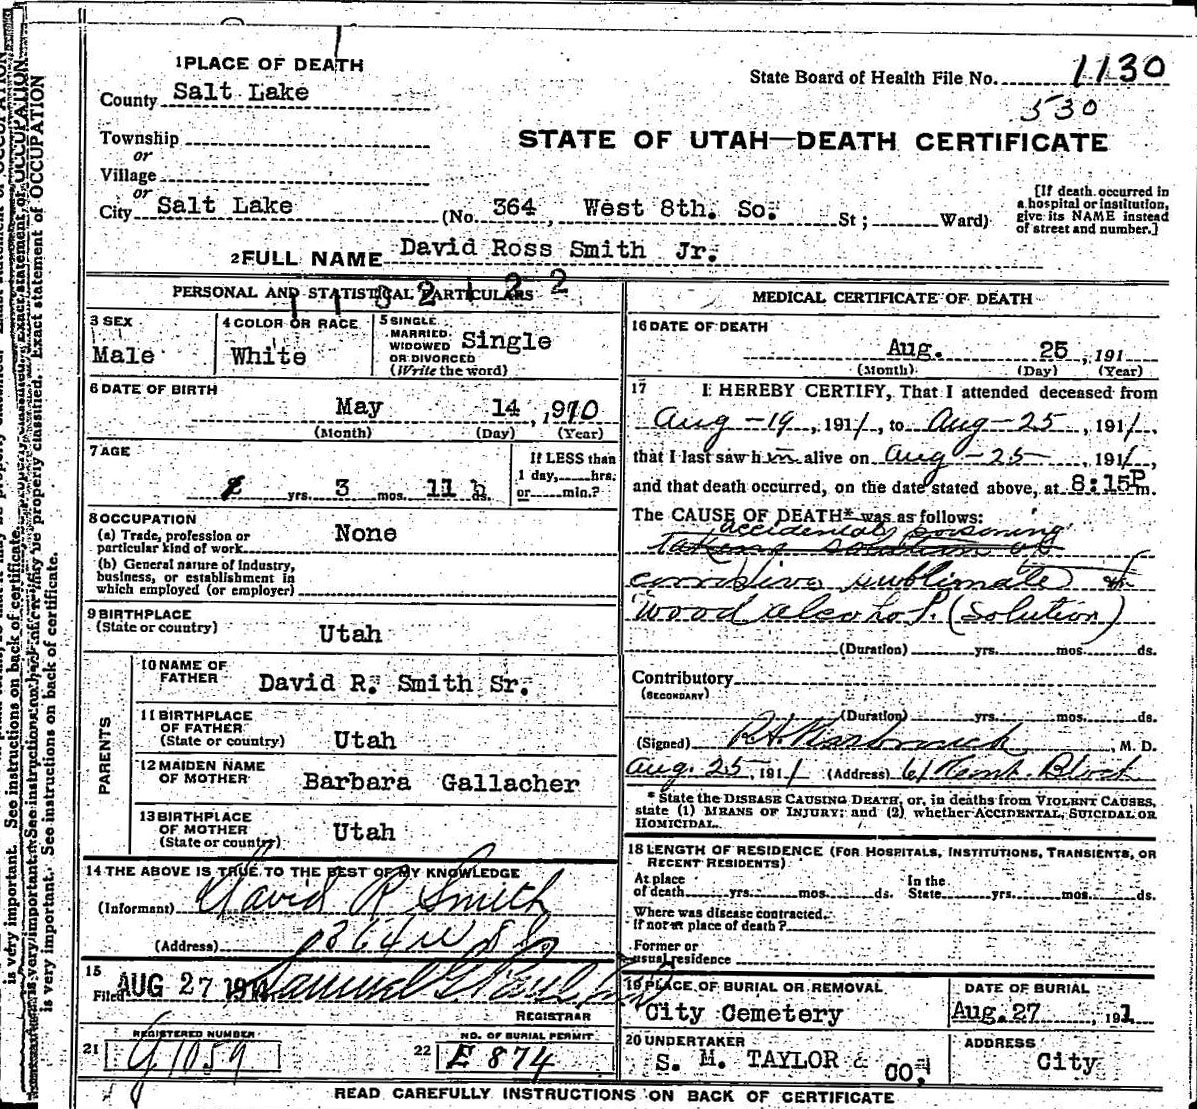 1 PLACE OF DEATH
State Board of Health File No. 1130
530
County Salt Lake
STATE OF UTAH—DEATH CERTIFICATE
Township
or
Village
or
City Salt Lake (No. 364, West 8th. So. St; Ward)
[If death occurred in
a hospital or institution,
give its NAME instead
of street and number.]
2 FULL NAME David Ross Smith Jr.
PERSONAL AND STATISTICAL PARTICULARS
3 SEX
Male
4 COLOR OR RACE
White
5 SINGLE
MARRIED
WIDOWED
OR DIVORCED
(Write the word)
Single
6 DATE OF BIRTH
May 14, 1910
(Month) (Day) (Year)
7 AGE
yrs. 3 mos. 11 ds.
If LESS than
1 day, hrs.
or min.?
8 OCCUPATION
(a) Trade, profession or
particular kind of work None
(b) General nature of industry,
business, or establishment in
which employed (or employer)
9 BIRTHPLACE
(State or country) Utah
PARENTS
10 NAME OF
FATHER David R. Smith Sr.
11 BIRTHPLACE
OF FATHER
(State or country) Utah
12 MAIDEN NAME
OF MOTHER Barbara Gallacher
13 BIRTHPLACE
OF MOTHER
(State or country) Utah
14 THE ABOVE IS TRUE TO THE BEST OF MY KNOWLEDGE
(Informant) David R Smith
(Address) 364 W 8 So
15
Filed AUG 27 1911 Samuel G. Paul
REGISTRAR
21 REGISTERED NUMBER
G 1059
22 NO. OF BURIAL PERMIT
E 874
MEDICAL CERTIFICATE OF DEATH
16 DATE OF DEATH
Aug. 25, 191
(Month) (Day) (Year)
17 I HEREBY CERTIFY, That I attended deceased from
Aug-19, 1911, to Aug-25, 1911,
that I last saw him alive on Aug-25, 1911,
and that death occurred, on the date stated above, at 8:15 P m.
The CAUSE OF DEATH* was as follows:
accidental poisoning
taking solution of
corrosive sublimate
wood alcohol. (solution)
(Duration) yrs. mos. ds.
Contributory
(SECONDARY)
(Duration) yrs. mos. ds.
(Signed) M. D.
Aug. 25, 1911 (Address)
* State the DISEASE CAUSING DEATH, or, in deaths from VIOLENT CAUSES,
state (1) MEANS OF INJURY; and (2) whether ACCIDENTAL, SUICIDAL OR
HOMICIDAL.
18 LENGTH OF RESIDENCE (FOR HOSPITALS, INSTITUTIONS, TRANSIENTS, OR
RECENT RESIDENTS)
At place
of death yrs. mos. ds. In the
State yrs. mos. ds.
Where was disease contracted,
If not at place of death?
Former or
usual residence
19 PLACE OF BURIAL OR REMOVAL
City Cemetery
DATE OF BURIAL
Aug. 27, 1911
20 UNDERTAKER
S. M. TAYLOR & CO.
ADDRESS
City
READ CAREFULLY INSTRUCTIONS ON BACK OF CERTIFICATE
be properly classified. Exact statement of OCCUPATION
is very important. See instructions on back of certificate.